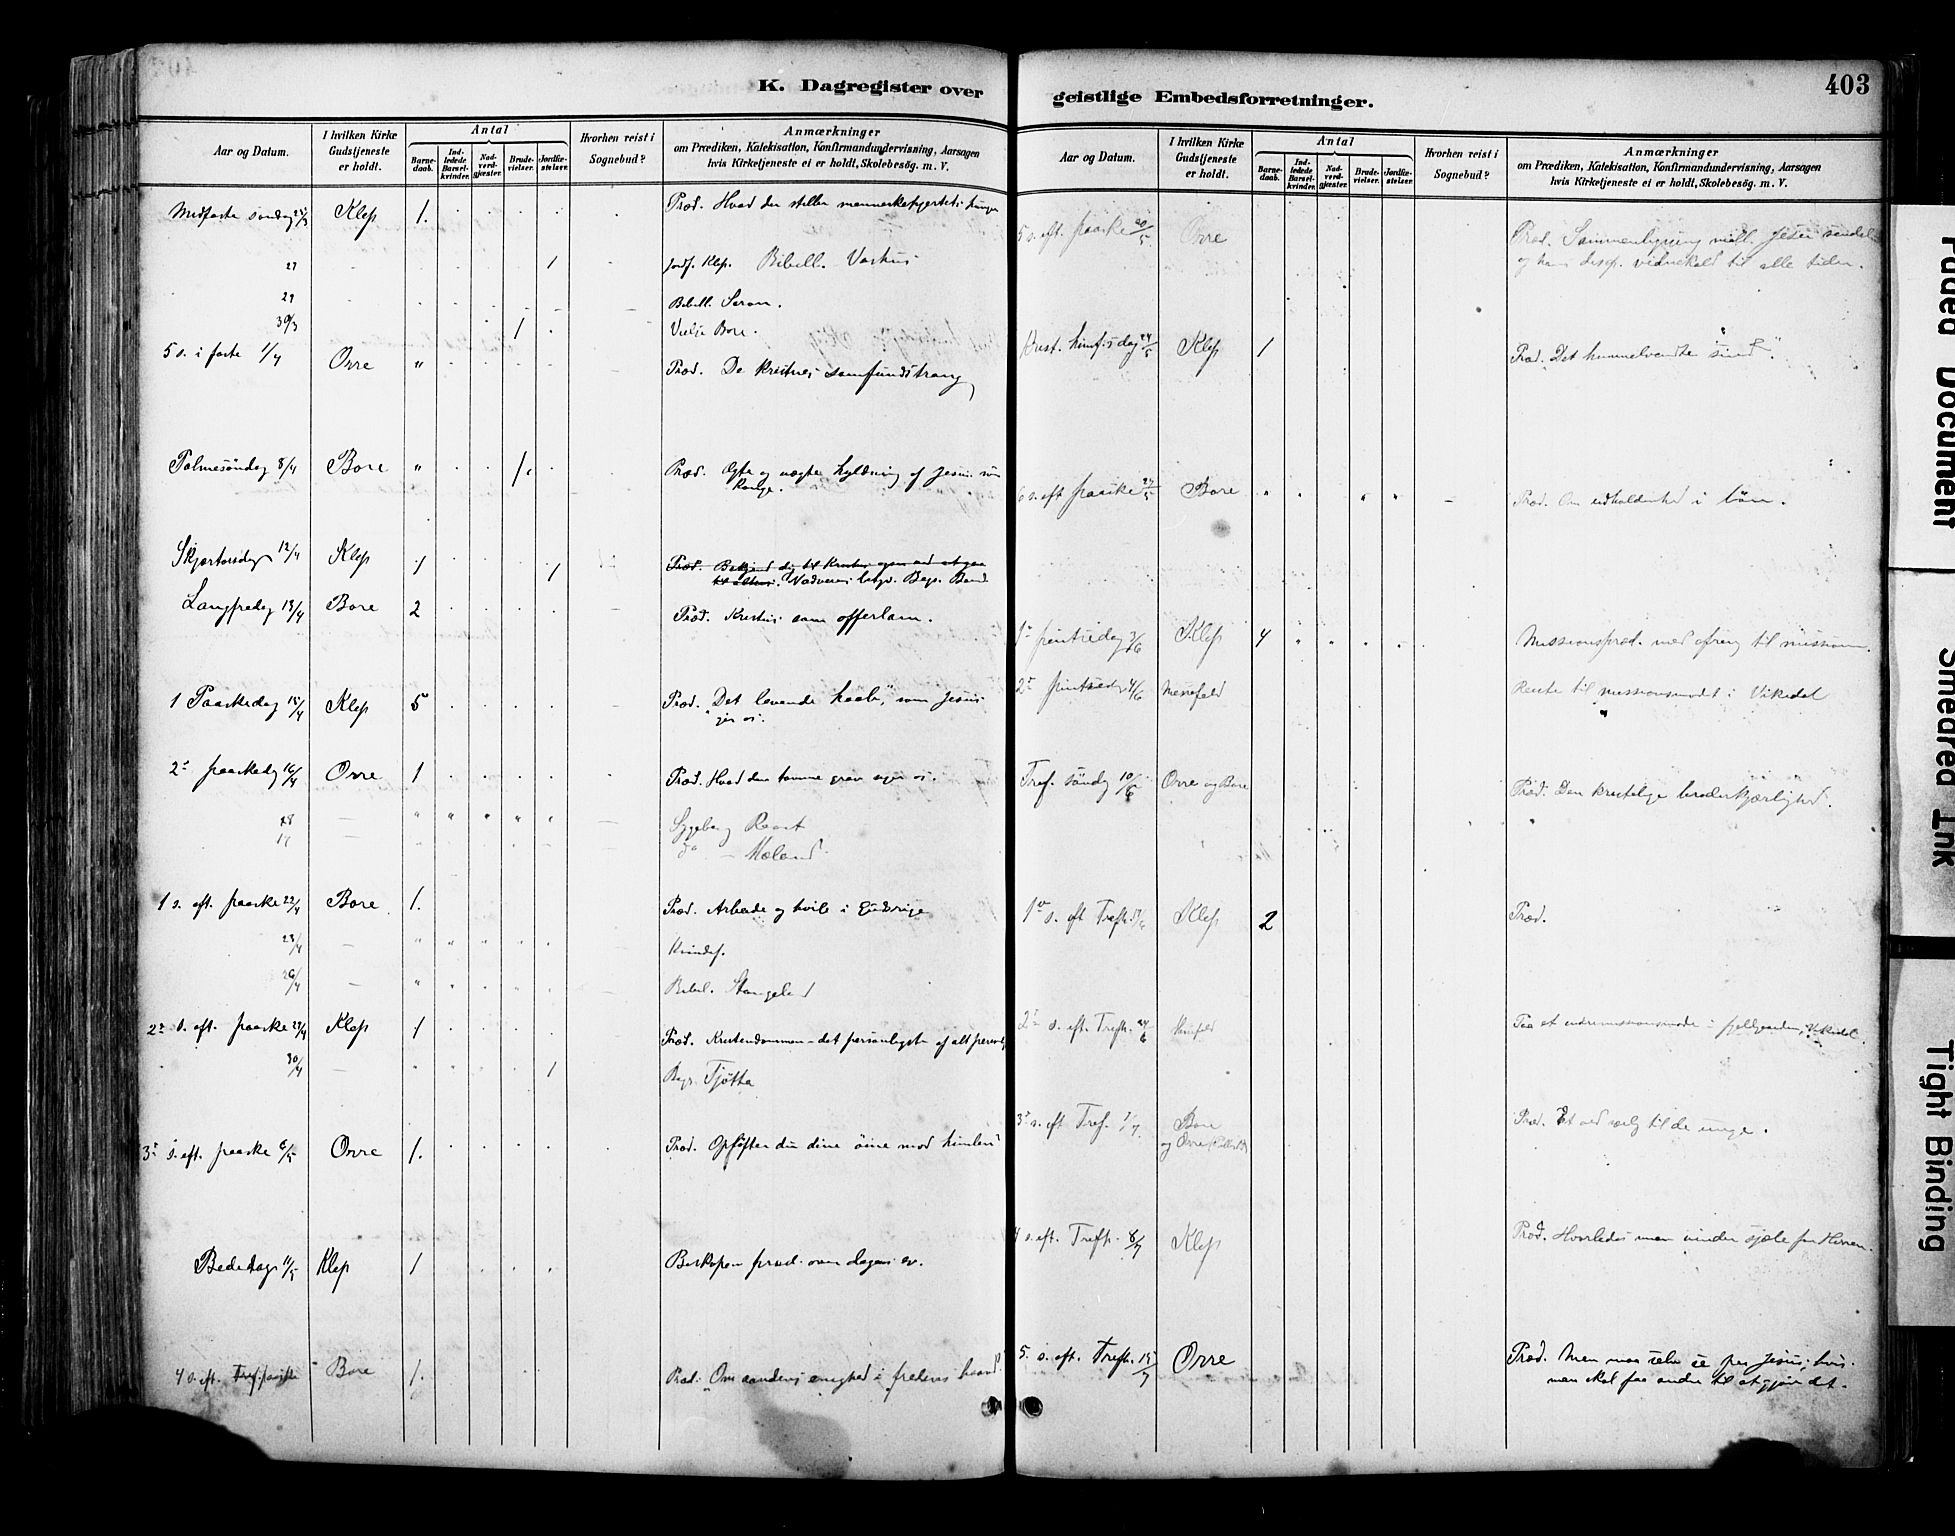 K. Dagregister over
Aar og Datum.
I hvilken Kirke Gudstjeneste er holdt.
Antal
Barnedaab.
Indledede Barselkvinder.
Nadverdgjester.
Brudevielser.
Jordfæstelser.
Hvorhen reist i Sognebud?
Anmærkninger
om Prædiken, Katekisation, Konfirmandundervisning, Aarsagen
hvis Kirketjeneste ei er holdt, Skolebesøg. m. V.
Midfaste søndag 25/3 Klep 1. Præd. Hvad der stiller menneskehjertets hunger
27 1 Jordf. Klep. Bibell.
29 Bibell.
30/3 1 Vielse Bore.
5 s. i faste 1/4 Orre " Præd. De kristnes samfundstrang
Palmesöndag 8/4 Bore " 1. Præd. Ægte og uægte hyldning af Jesus som
konge.
Skjærtorsdag 12/4 Klep 1 1 Præd.
Nadverens
Langfredag 13/4 Bore 2 Præd. Kristus som offerlam.
1 Paaskedag 15/4 Klep 5 Præd. "Det levende haab", som Jesus
gir os.
2den paaskedag 16/4 Orre 1 Præd. Hvad den tomme grav siger os.
28 — " " " " " — Sygebesøg
17 do — Mæland
1 s. eft. paaske 22/4 Bore 1. Præd. Arbeide og hvile i
23/4 — Kvindef.
26/4 — Bibel. Stangeland
2den s. eft. paaske 29/4 Klep 1 Præd. Kristendommen – det personligste af alt
30/4 — 1 Begr. Tjøtta
3die s. eft. paaske 6/5 Orre 1. Præd. Opløfter du dine öine mod himlen?
Bededag 11/5 Klep 1 Biskopen præd. over dagens ev.
4 s. eft. paaske Bore 1. Præd. Om aandens enighed i fredens baand
geistlige Embedsforretninger.
403
Aar og Datum.
I hvilken Kirke Gudstjeneste er holdt.
Antal
Barnedaab.
Indledede Barselkvinder.
Nadverdgjester.
Brudevielser.
Jordfæstelser.
Hvorhen reist i Sognebud?
Anmærkninger
om Prædiken, Katekisation, Konfirmandundervisning, Aarsagen
hvis Kirketjeneste ei er holdt, Skolebesøg. m. V.
5 s. eft. paaske 20/5. Orre Præd. Sammenligning mell. Jesu
og hans discp. vidnekald til alle tider.
Krist. himf.s dag 24/5 Klep 1 Præd. Det himmelvendte "sind".
6 s. eft paaske 27/5 Bore Præd. Om udholdenhed i bön.
1ste pintsedag 3/6 Klep 4 Missionspræd. med ofring til missionen.
2den pintsedag 4/6 Messefald Reiste til missionsmødet i Vikedal
Tref. söndag 10/6 Orre og Bore Præd. Den kristelige broderkjærlighed.
1ste s. eft Trefh. 17/6 Klep 2 Præd.
2den s. eft. Trefh. 24/6 Messefald Paa et indremissionsmøde i Vikedal.
3die s. eft Tref. 1/7. Bore Præd. Et ord særlig til de unge.
og Orre
4 s. eft. Trefh. 8/7 Klep Præd. Hvorledes man vinder sjæle for Herren.
5. s. eft. Trefh. 15/7 Orre Præd. Man maa selv se paa Jesus, hvis
man skal faa andre til at gjøre det.
Faded Document
Smeared Ink
Tight Binding